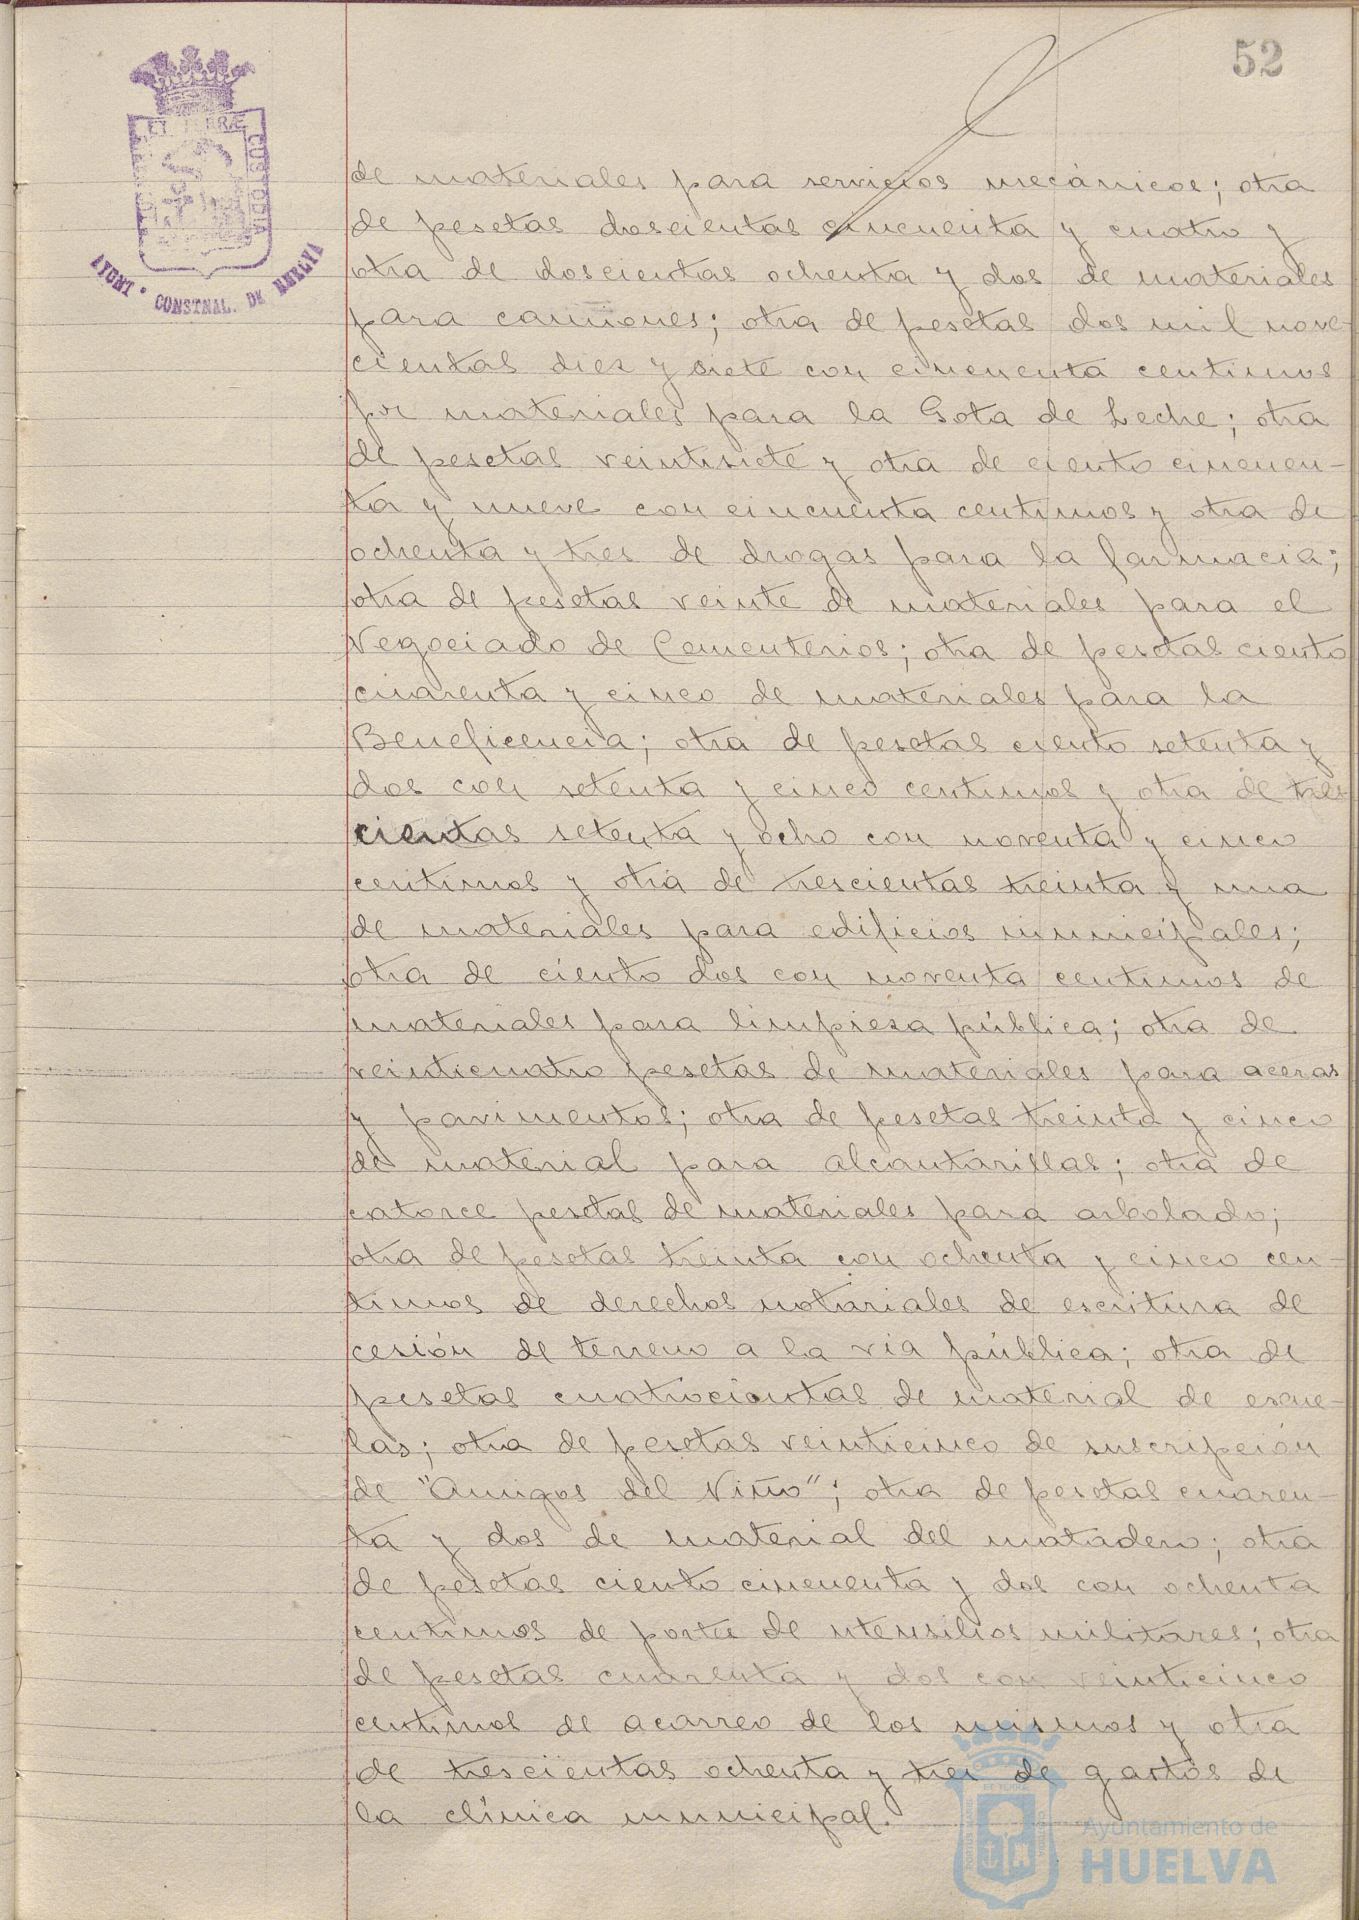 52
ET TERRÆ CUSTODIA
AYUNT. CONSTNAL. DE HUELVA
de materiales para servicios mecánicos; otra
de pesetas doscientas cincuenta y cuatro y
otra de doscientas ochenta y dos de materiales
para camiones; otra de pesetas dos mil nove-
cientas diez y siete con cincuenta centimos
por materiales para la Gota de Leche; otra
de pesetas veintisiete y otra de ciento cincuen-
ta y nueve con cincuenta centimos y otra de
ochenta y tres de drogas para la farmacia;
otra de pesetas veinte de materiales para el
Negociado de Cementerios; otra de pesetas ciento
cuarenta y cinco de materiales para la
Beneficencia; otra de pesetas ciento setenta y
dos con setenta y cinco centimos y otra de tres
cientas setenta y ocho con noventa y cinco
centimos y otra de trescientas treinta y una
de materiales para edificios municipales;
otra de ciento dos con noventa centimos de
materiales para limpieza pública; otra de
veinticuatro pesetas de materiales para aceras
y pavimentos; otra de pesetas treinta y cinco
de material para alcantarillas; otra de
catorce pesetas de materiales para arbolado;
otra de pesetas treinta con ochenta y cinco cen-
timos de derechos notariales de escritura de
cesión de terreno a la via pública; otra de
pesetas cuatrocientas de material de escue-
las; otra de pesetas veinticinco de suscripción
de "Amigos del Niño"; otra de pesetas cuaren-
ta y dos de material del matadero; otra
de pesetas ciento cincuenta y dos con ochenta
centimos de porte de utensilios militares; otra
de pesetas cuarenta y dos con veinticinco
centimos de acarreo de los mismos y otra
de trescientas ochenta y tres de gastos de
la clínica municipal.
Ayuntamiento de
HUELVA